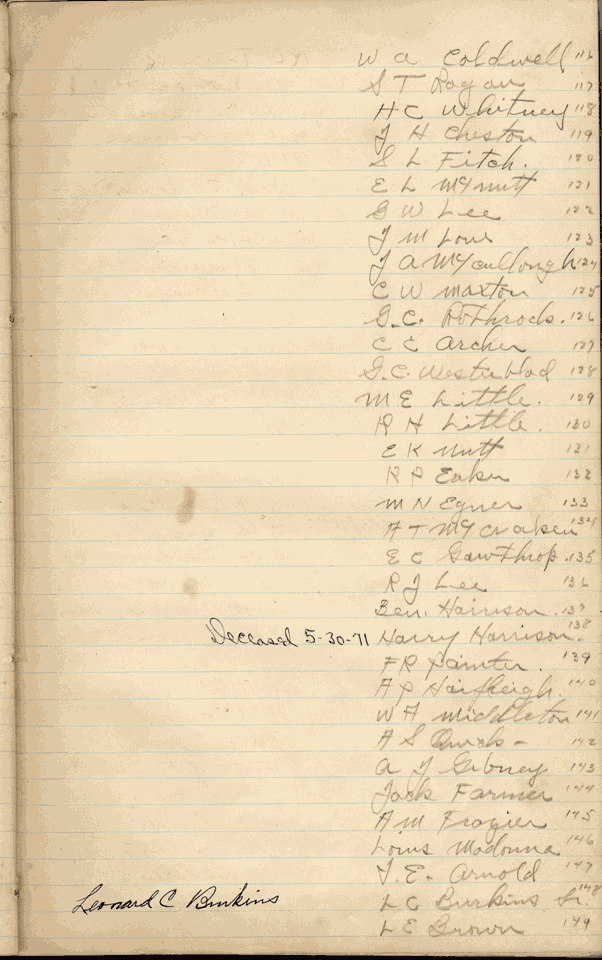 W A Coldwell 116
S T Ragan 117
H C Whitney 118
J H Cheston 119
S L Fitch. 120
E L McNutt 121
G W Lee 122
J M Love 123
J A McCullough 124
C W Maxton 125
G.C. Rothrock. 126
C C Archer 127
G.C. Westerblad 128
M E Little. 129
R H Little. 130
E K Nutt 131
R P Eaker 132
M N Egner 133
A T McCraken 134
E C Gawthrop. 135
R J Lee 136
Ben. Harrison. 137
Deceased 5-30-71 Harry Harrison. 138
F R Painter. 139
A P 140
W A Middleton 141
A S Quick - 142
A J Gibney 143
Jack Farmer 144
A M Frazier 145
Louis Madonna 146
J.E. Arnold 147
Leonard C Burkins L C Burkins Sr. 148
L E Brown 149